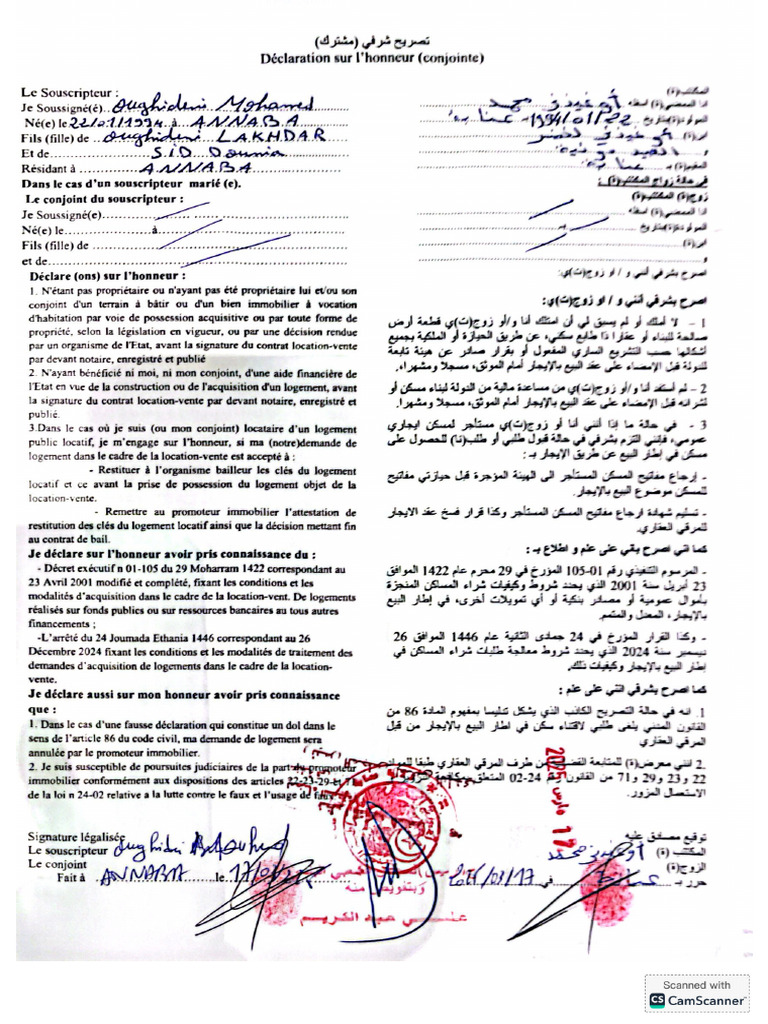 تصريح شرفي (مشترك)
Déclaration sur l'honneur (conjointe)
Le Souscripteur :
Je Soussigné(é) Oughideni Mohamed
Né(e) le 22/01/1994 à ANNABA
Fils (fille) de Oughideni LAKHDAR
Et de S.I.D Dounia
Résidant à ANNABA
Dans le cas d'un souscripteur marié (e).
Le conjoint du souscripteur :
Je Soussigné(e)
Né(e) le à
Fils (fille) de
et de
Déclare (ons) sur l'honneur :
1. N'étant pas propriétaire ou n'ayant pas été propriétaire lui et/ou son
conjoint d'un terrain à bâtir ou d'un bien immobilier à vocation
d'habitation par voie de possession acquisitive ou par toute forme de
propriété, selon la législation en vigueur, ou par une décision rendue
par un organisme de l'Etat, avant la signature du contrat location-vente
par devant notaire, enregistré et publié
2. N'ayant bénéficié ni moi, ni mon conjoint, d'une aide financière de
l'Etat en vue de la construction ou de l'acquisition d'un logement, avant
la signature du contrat location-vente par devant notaire, enregistré et
publié.
3.Dans le cas où je suis (ou mon conjoint) locataire d'un logement
public locatif, je m'engage sur l'honneur, si ma (notre)demande de
logement dans le cadre de la location-vente est accepté à :
- Restituer à l'organisme bailleur les clés du logement
locatif et ce avant la prise de possession du logement objet de la
location-vente.
- Remettre au promoteur immobilier l'attestation de
restitution des clés du logement locatif ainsi que la décision mettant fin
au contrat de bail.
Je déclare sur l'honneur avoir pris connaissance du :
- Décret exécutif n 01-105 du 29 Moharram 1422 correspondant au
23 Avril 2001 modifié et complété, fixant les conditions et les
modalités d'acquisition dans le cadre de la location-vent. De logements
réalisés sur fonds publics ou sur ressources bancaires au tous autres
financements ;
-L'arrêté du 24 Joumada Ethania 1446 correspondant au 26
Décembre 2024 fixant les conditions et les modalités de traitement des
demandes d'acquisition de logements dans le cadre de la location-
vente.
Je déclare aussi sur mon honneur avoir pris connaissance
que :
1. Dans le cas d'une fausse déclaration qui constitue un dol dans le
sens de l'article 86 du code civil, ma demande de logement sera
annulée par le promoteur immobilier.
2. Je suis susceptible de poursuites judiciaires de la part du promoteur
immobilier conformément aux dispositions des articles 22-23-29-et
de la loi n 24-02 relative a la lutte contre le faux et l'usage de faux
Signature légalisée
Le souscripteur Oughideni
Le conjoint
Fait à ANNABA le 17/03/
المكتتب(ة)
انا الممضي(ة) اسفله أوغيدني محمد
المولود(ة) بتاريخ 1994/01/22 عنابة
ابن(ة) أوغيدني لخضر
و
المقيم(ة) بـ عنابة
في حالة زواج المكتتب(ة) :
زوج(ة) المكتتب(ة)
انا الممضي(ة) اسفله
المولود(ة) بتاريخ بـ
ابن(ة)
و
اصرح بشرفي أنني و / أو زوج(ت)ي:
اصرح بشرفي أنني و / او زوج(ت)ي:
1 - لا أملك أو لم يسبق لي أن امتلك أنا و/أو زوج(ت)ي قطعة أرض
صالحة للبناء أو عقارا ذا طابع سكني، عن طريق الحيازة أو الملكية بجميع
أشكالها حسب التشريع الساري المفعول أو بقرار صادر عن هيئة تابعة
للدولة قبل الإمضاء على عقد البيع بالإيجار أمام الموثق، مسجلا ومشهرا.
2 - لم أستفد أنا و/أو زوج(ت)ي من مساعدة مالية من الدولة لبناء مسكن أو
لشرائه قبل الإمضاء على عقد البيع بالإيجار أمام الموثق، مسجلا ومشهرا.
3 - في حالة ما إذا أنني أنا أو زوج(ت)ي مستأجر لمسكن ايجاري
عمومي، فإنني التزم بشرفي في حالة قبول طلبي أو طلب(نا) للحصول على
سكن في إطار البيع عن طريق الإيجار بـ :
- إرجاع مفاتيح المسكن المستأجر الى الهيئة المؤجرة قبل حيازتي مفاتيح
للمسكن موضوع البيع بالإيجار.
- تسليم شهادة ارجاع مفاتيح المسكن المستأجر وكذا قرار فسخ عقد الايجار
للمرقي العقاري.
كما اني اصرح باني على علم و اطلاع بـ :
- المرسوم التنفيذي رقم 01-105 المؤرخ في 29 محرم عام 1422 الموافق
23 أبريل سنة 2001 الذي يحدد شروط وكيفيات شراء المساكن المنجزة
بأموال عمومية أو مصادر بنكية أو أي تمويلات أخرى، في إطار البيع
بالإيجار، المعدل والمتمم.
- وكذا القرار المؤرخ في 24 جمادى الثانية عام 1446 الموافق 26
ديسمبر سنة 2024 الذي يحدد شروط معالجة طلبات شراء المساكن في
إطار البيع بالإيجار وكيفيات ذلك.
كما اصرح بشرفي انني على علم :
1. انه في حالة التصريح الكاذب الذي يشكل تدليسا بمفهوم المادة 86 من
القانون المدني يلغى طلبي لاقتناء سكن في اطار البيع بالإيجار من قبل
المرقي العقاري
2. انني معرض(ة) للمتابعة القضائية من طرف المرقي العقاري طبقا للمواد
22 و23 و29 و71 من القانون رقم 02-24 المتعلق بمكافحة التزوير و
الاستعمال المزور.
17 مارس 2025
توقيع مصادق عليه
المكتتب (ة) أوغيدني محمد
الزوج(ة)
حرر بـ عنابة في 2025/03/17
وبتفويض منه
علني عبد الكريم
Scanned with
CS CamScanner